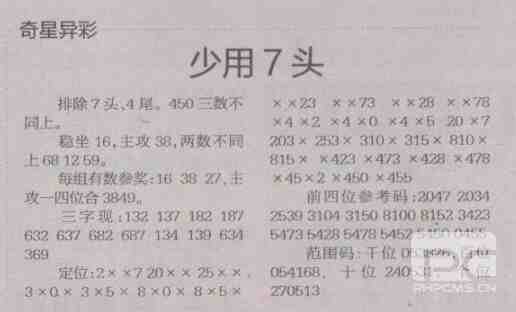 奇星异彩
少用7头
排除7头、4尾。450三数不
同上。
稳坐16,主攻38,两数不同
上68 12 59。
每组有数参奖:16 38 27,主
攻一四位合3849。
三字现:132 137 182 187
632 637 682 687 134 139 634
369
定位:2××7 20×× 25××
3×0× 3×5× 8×0× 8×5×
××23 ××73 ××28 ××78
×4×2 ×4×0 ×4×5 20×7
203× 253× 310× 315× 810×
815× ×423 ×473 ×428 ×478
×45×2 ×450 ×455
前四位参考码:2047 2034
2539 3104 3150 8100 8152 3423
5473 5428 5478 5452 5450 0455
范围码:千位
054168, 十位
270513
PHPCMS.CN